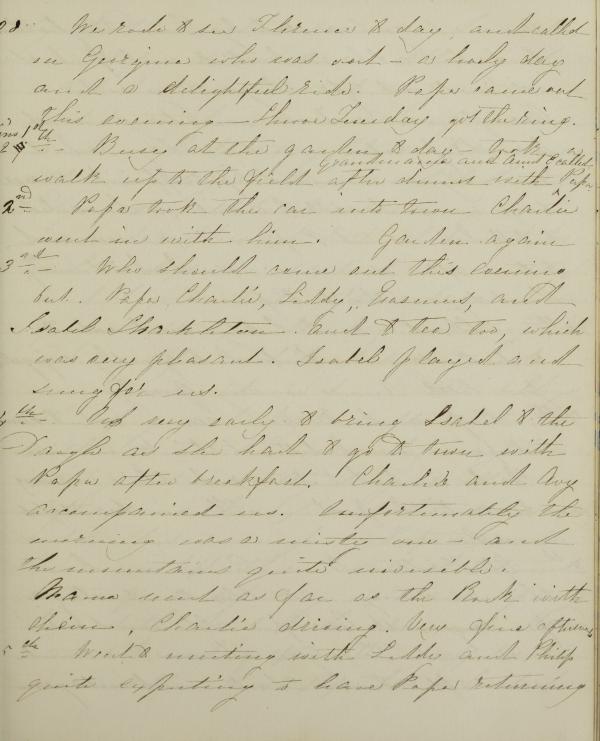 28 We rode to see Florence to day, and called
on Georgina who was out - a lovely day
and a delightful ride. Papa came out
this evening - Shrove Tuesday got the ring.
1st Busy at the garden to day - took a
Grandmama and Aunt E called
walk up to the field after dinner with Papa
2nd Papa took the car into town Charlie
went in with him. Garden again
3rd Who should come out this evening
but Papa Charlie, Liddy, Erasmus, and
Isabel Shackleton and to tea too, which
was very pleasant. Isabel played and
sung for us.
4th Up very early to bring Isabel to the
as she had to go to town with
Papa after breakfast. Charlie and
accompanied us. Unfortunately the
morning was a misty one - and
the mountains quite invisible.
Mama went as far as the with
them, Charlie driving. Very fine afternoon
5th Went to meeting with Liddy and Philip
quite expecting to have Papa returning